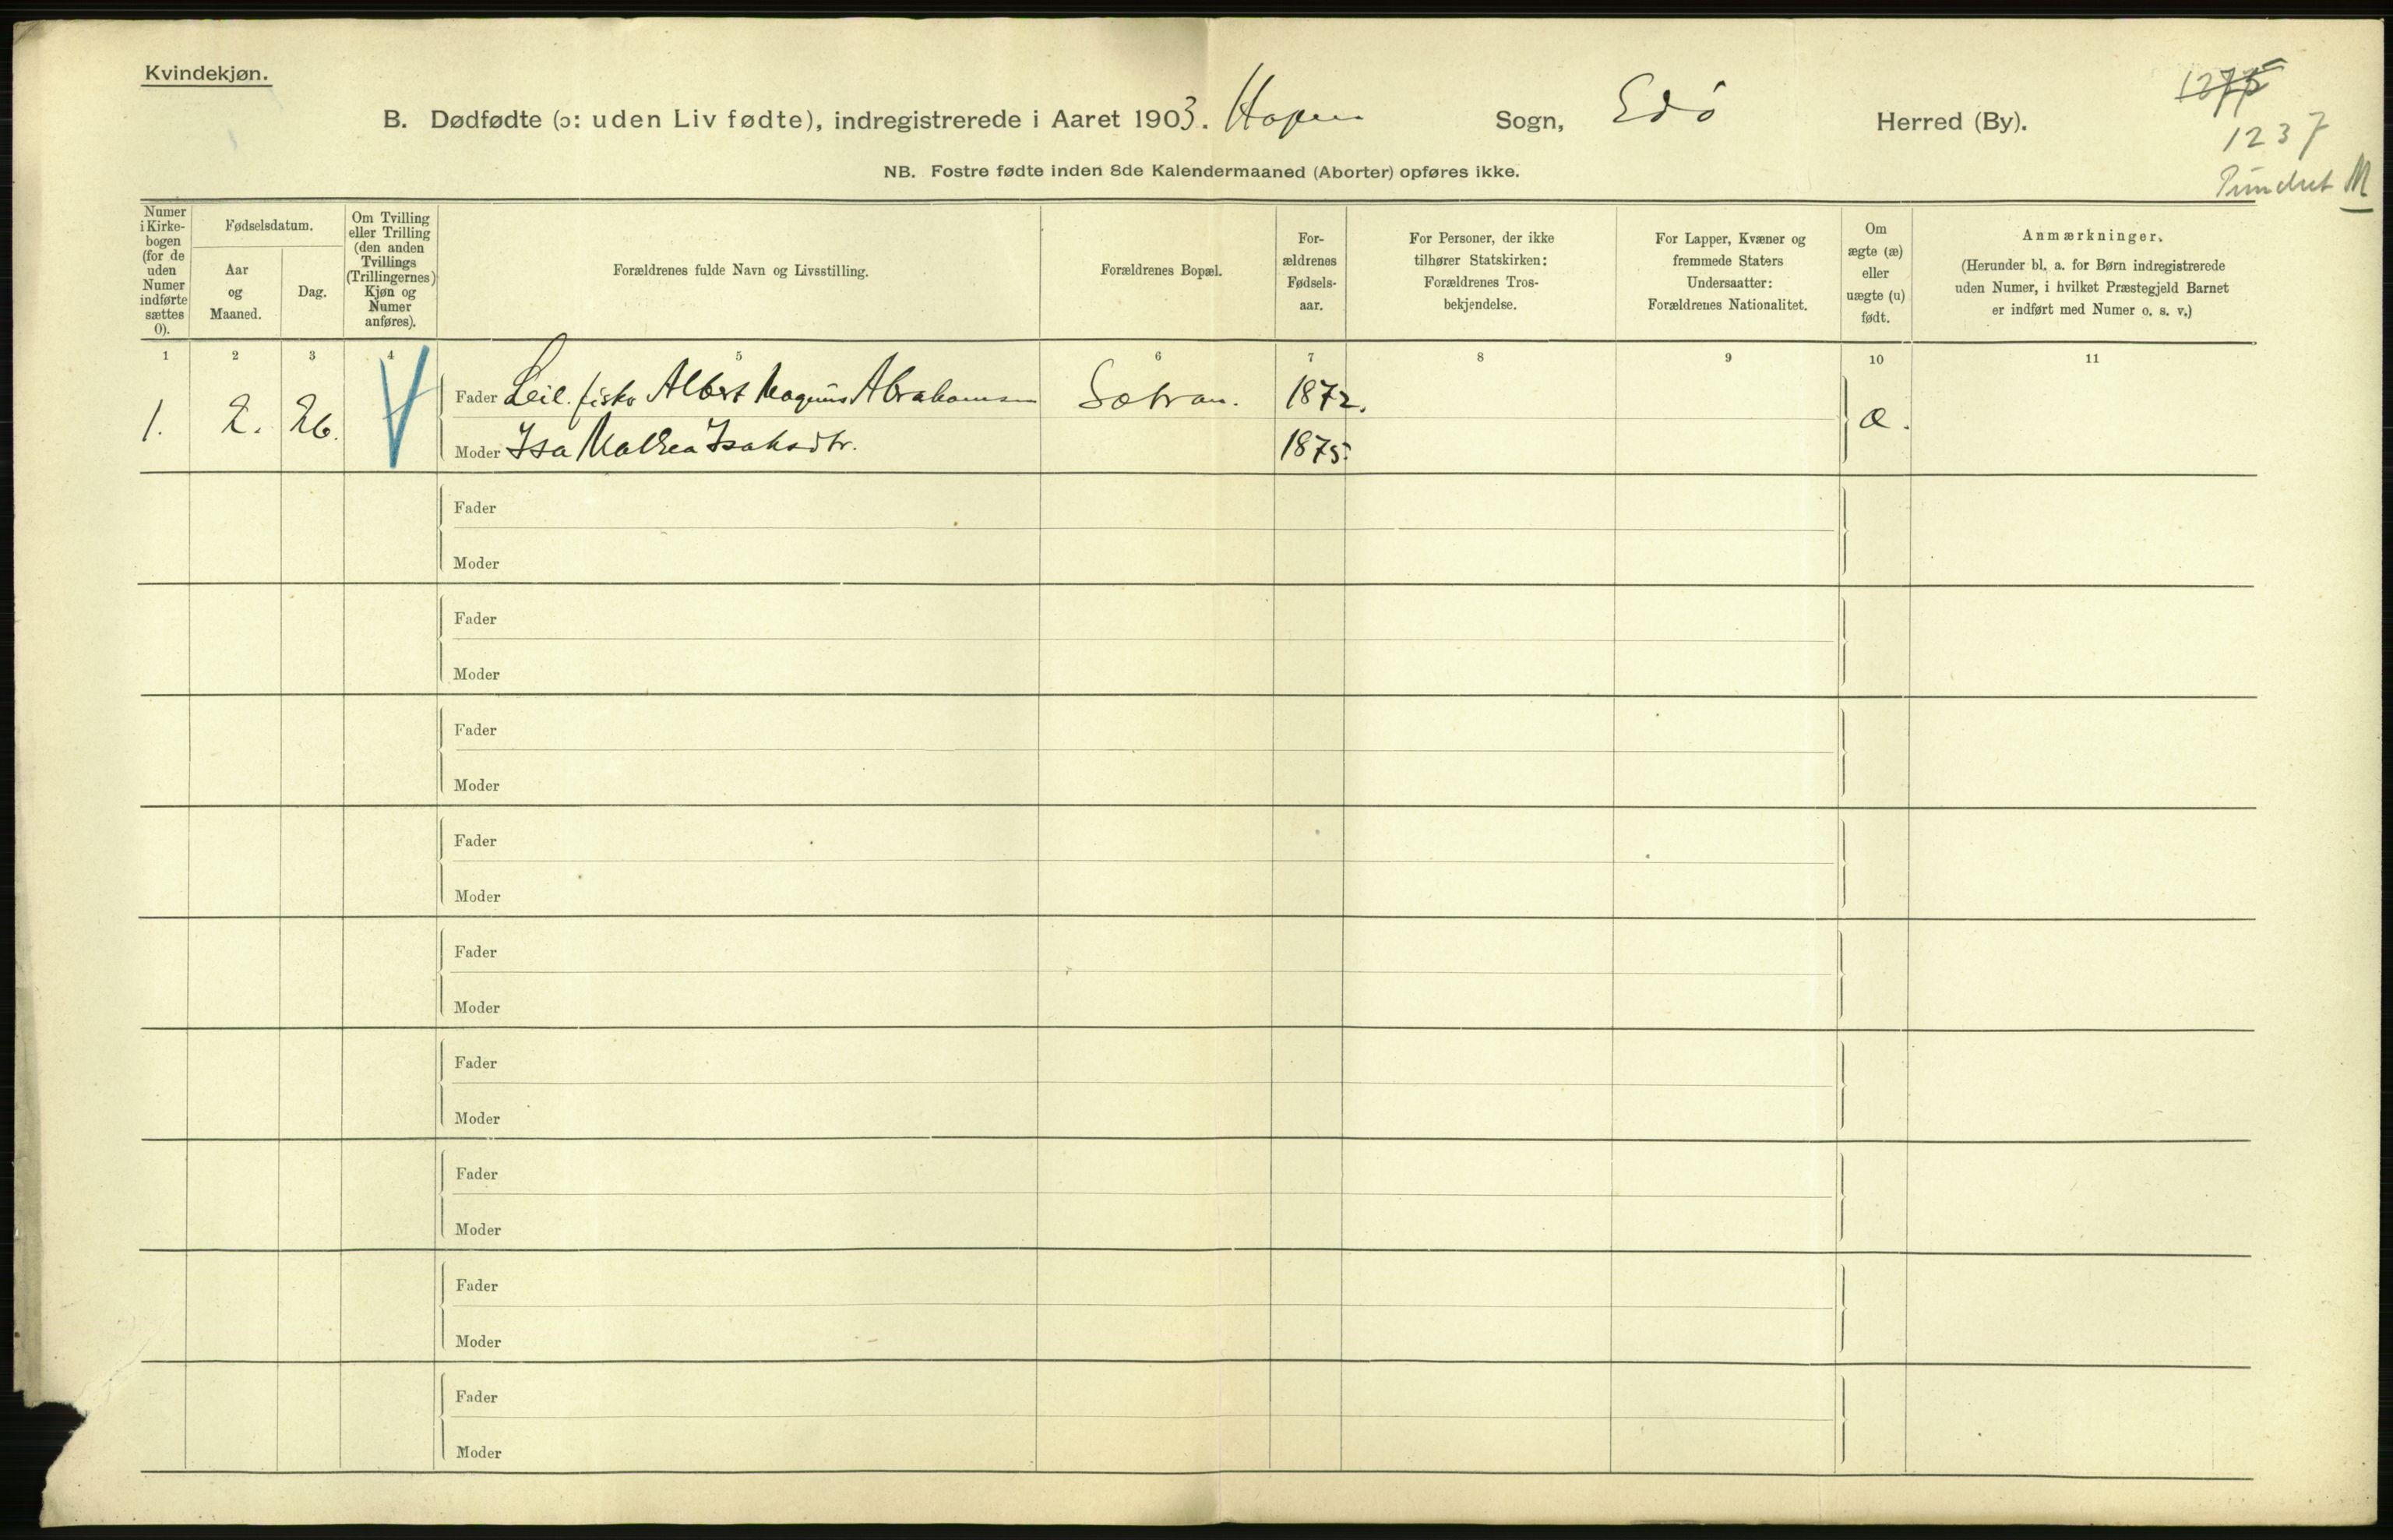 Kvindekjøn.
B. Dødfødte (ɔ: uden Liv fødte), indregistrerede i Aaret 1903. Hopen Sogn, Edø Herred (By).
1237
NB. Fostre fødte inden 8de Kalendermaaned (Aborter) opføres ikke.
M
Numer i Kirke-bogen (for de uden Numer indførte sættes 0).
Fødselsdatum.
Aar og Maaned.
Dag.
Om Tvilling eller Trilling (den anden Tvillings (Trillingernes) Kjøn og Numer anføres).
Forældrenes fulde Navn og Livsstilling.
Forældrenes Bopæl.
For-ældrenes Fødsels-aar.
For Personer, der ikke tilhører Statskirken: Forældrenes Tros-bekjendelse.
For Lapper, Kvæner og fremmede Staters Undersaatter: Forældrenes Nationalitet.
Om ægte (æ) eller uægte (u) født.
Anmærkninger.
(Herunder bl. a. for Børn indregistrerede uden Numer, i hvilket Præstegjeld Barnet er indført med Numer o. s. v.)
1 2 3 4 5 6 7 8 9 10 11
Fader Leil. fisker Albert Magnus Abrahamsen Sætran. 1872.
1. 2. 26. æ.
Moder Isa Mathea Isaksdtr. 1875.
Fader
Moder
Fader
Moder
Fader
Moder
Fader
Moder
Fader
Moder
Fader
Moder
Fader
Moder
Fader
Moder
Fader
Moder